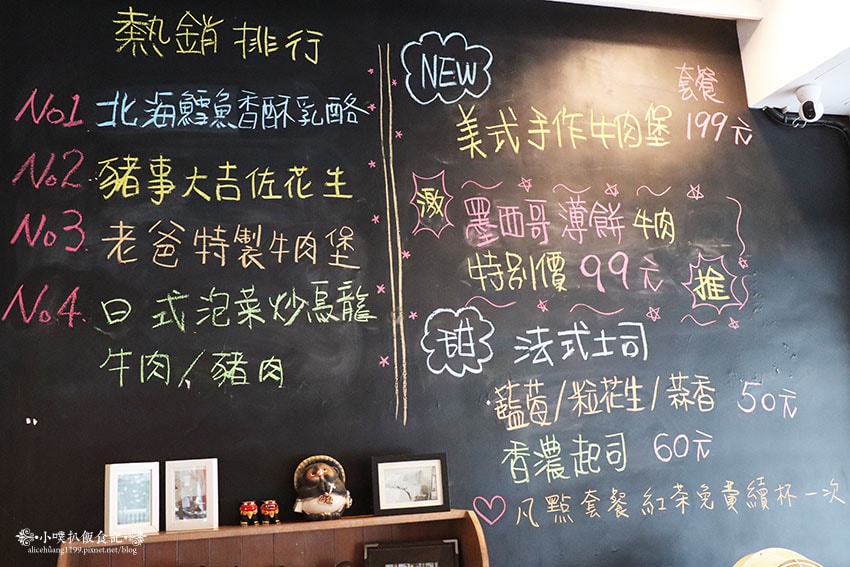 熱銷排行
No1 北海鱈魚香酥乳酪
No2 豬事大吉佐花生
No3. 老爸特製牛肉堡
No4. 日式泡菜炒烏龍
牛肉/豬肉
NEW
套餐
美式手作牛肉堡 199元
激
墨西哥薄餅 牛肉
特別價 99元
推
甜 法式土司
·藍莓/粒花生/蒜香 50元
香濃起司 60元
凡點套餐 紅茶免費續杯一次
小噗扒飯食記
alicehuang1199.pixnet.net/blog